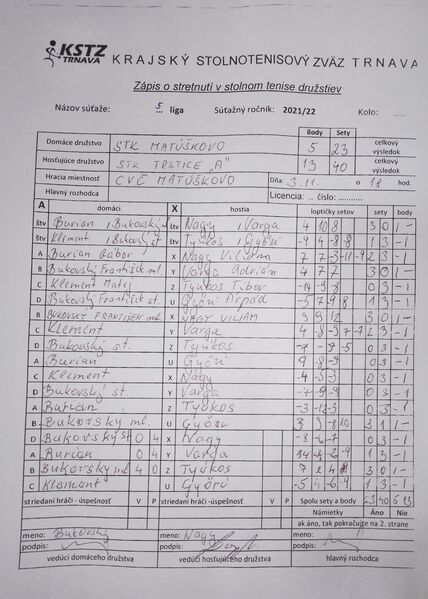 KSTZ TRNAVA KRAJSKÝ STOLNOTENISOVÝ ZVÄZ TRNAVA
Zápis o stretnutí v stolnom tenise družstiev
Názov súťaže: 5 liga Súťažný ročník: 2021/22 Kolo: ......
Body Sety
Domáce družstvo STK MATÚŠKOVO 5 23 celkový výsledok
Hosťujúce družstvo STK TRSTICE "A" 13 40 celkový výsledok
Hracia miestnosť CVČ MATÚŠKOVO Dňa: 3.11. o 18 hod.
Hlavný rozhodca Licencia: .. číslo: ..........
A domáci X hostia loptičky setov sety body
štv Burian, Bukovský ml Nagy, Varga 4 10 8 3 0 1 -
štv Klement, Bukovský st Tyukos, Győri -9 4 -8 -8 1 3 - 1
A Burian Gábor X Nagy Viliam 7 7 -3 -11 -9 2 3 - 1
B Bukovský František ml. Y Varga Adrián 4 7 7 3 0 1 -
C Klement Matej Z Tyukos Tibor -14 -9 -8 0 3 - 1
D Bukovský František st. U Győri Árpád -5 7 -9 -8 1 3 - 1
B BUKOVSKÝ FRANTIŠEK ml. X NAGY VILIAM 9 9 12 3 0 1 -
C Klement Y Varga 4 -8 -9 7 -7 2 3 - 1
D Bukovský st. Z Tyukos 0 3 - 1
A Burian U Győri 9 -8 -9 1 3 - 1
C Klement X Nagy -4 -5 -3 0 3 - 1
D Bukovský st. Y Varga -7 -9 -9 0 3 - 1
A Burian Z Tyukos -3 -12 -3 0 3 - 1
B Bukovský ml. U Győri 3 9 -8 10 3 1 1 -
D Bukovský st 0 4 X Nagy -8 -6 -7 0 3 - 1
A Burian 0 4 Y Varga 14 -8 -6 -9 1 3 - 1
B Bukovský ml 4 0 Z Tyukos 7 2 4 3 1 1 -
C Klement U Győri -5 4 -6 -9 1 3 - 1
striedaní hráči - úspešnosť V P striedaní hráči - úspešnosť V P Spolu sety a body 23 40 5 13
Námietky Áno Nie
ak áno, tak pokračujte na 2. strane
meno: Bukovský meno: Nagy meno:
podpis: podpis: podpis:
vedúci domáceho družstva vedúci hosťujúceho družstva hlavný rozhodca